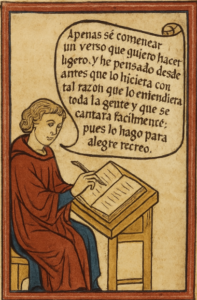 Apenas sé comenear
un verso que quiero hacer
ligero, y he pensado desde
antes que lo hiciera con
tal razón que lo entendiera
toda la gente y que se
cantara facilmenté;
pues lo hago para
alegre recreo.